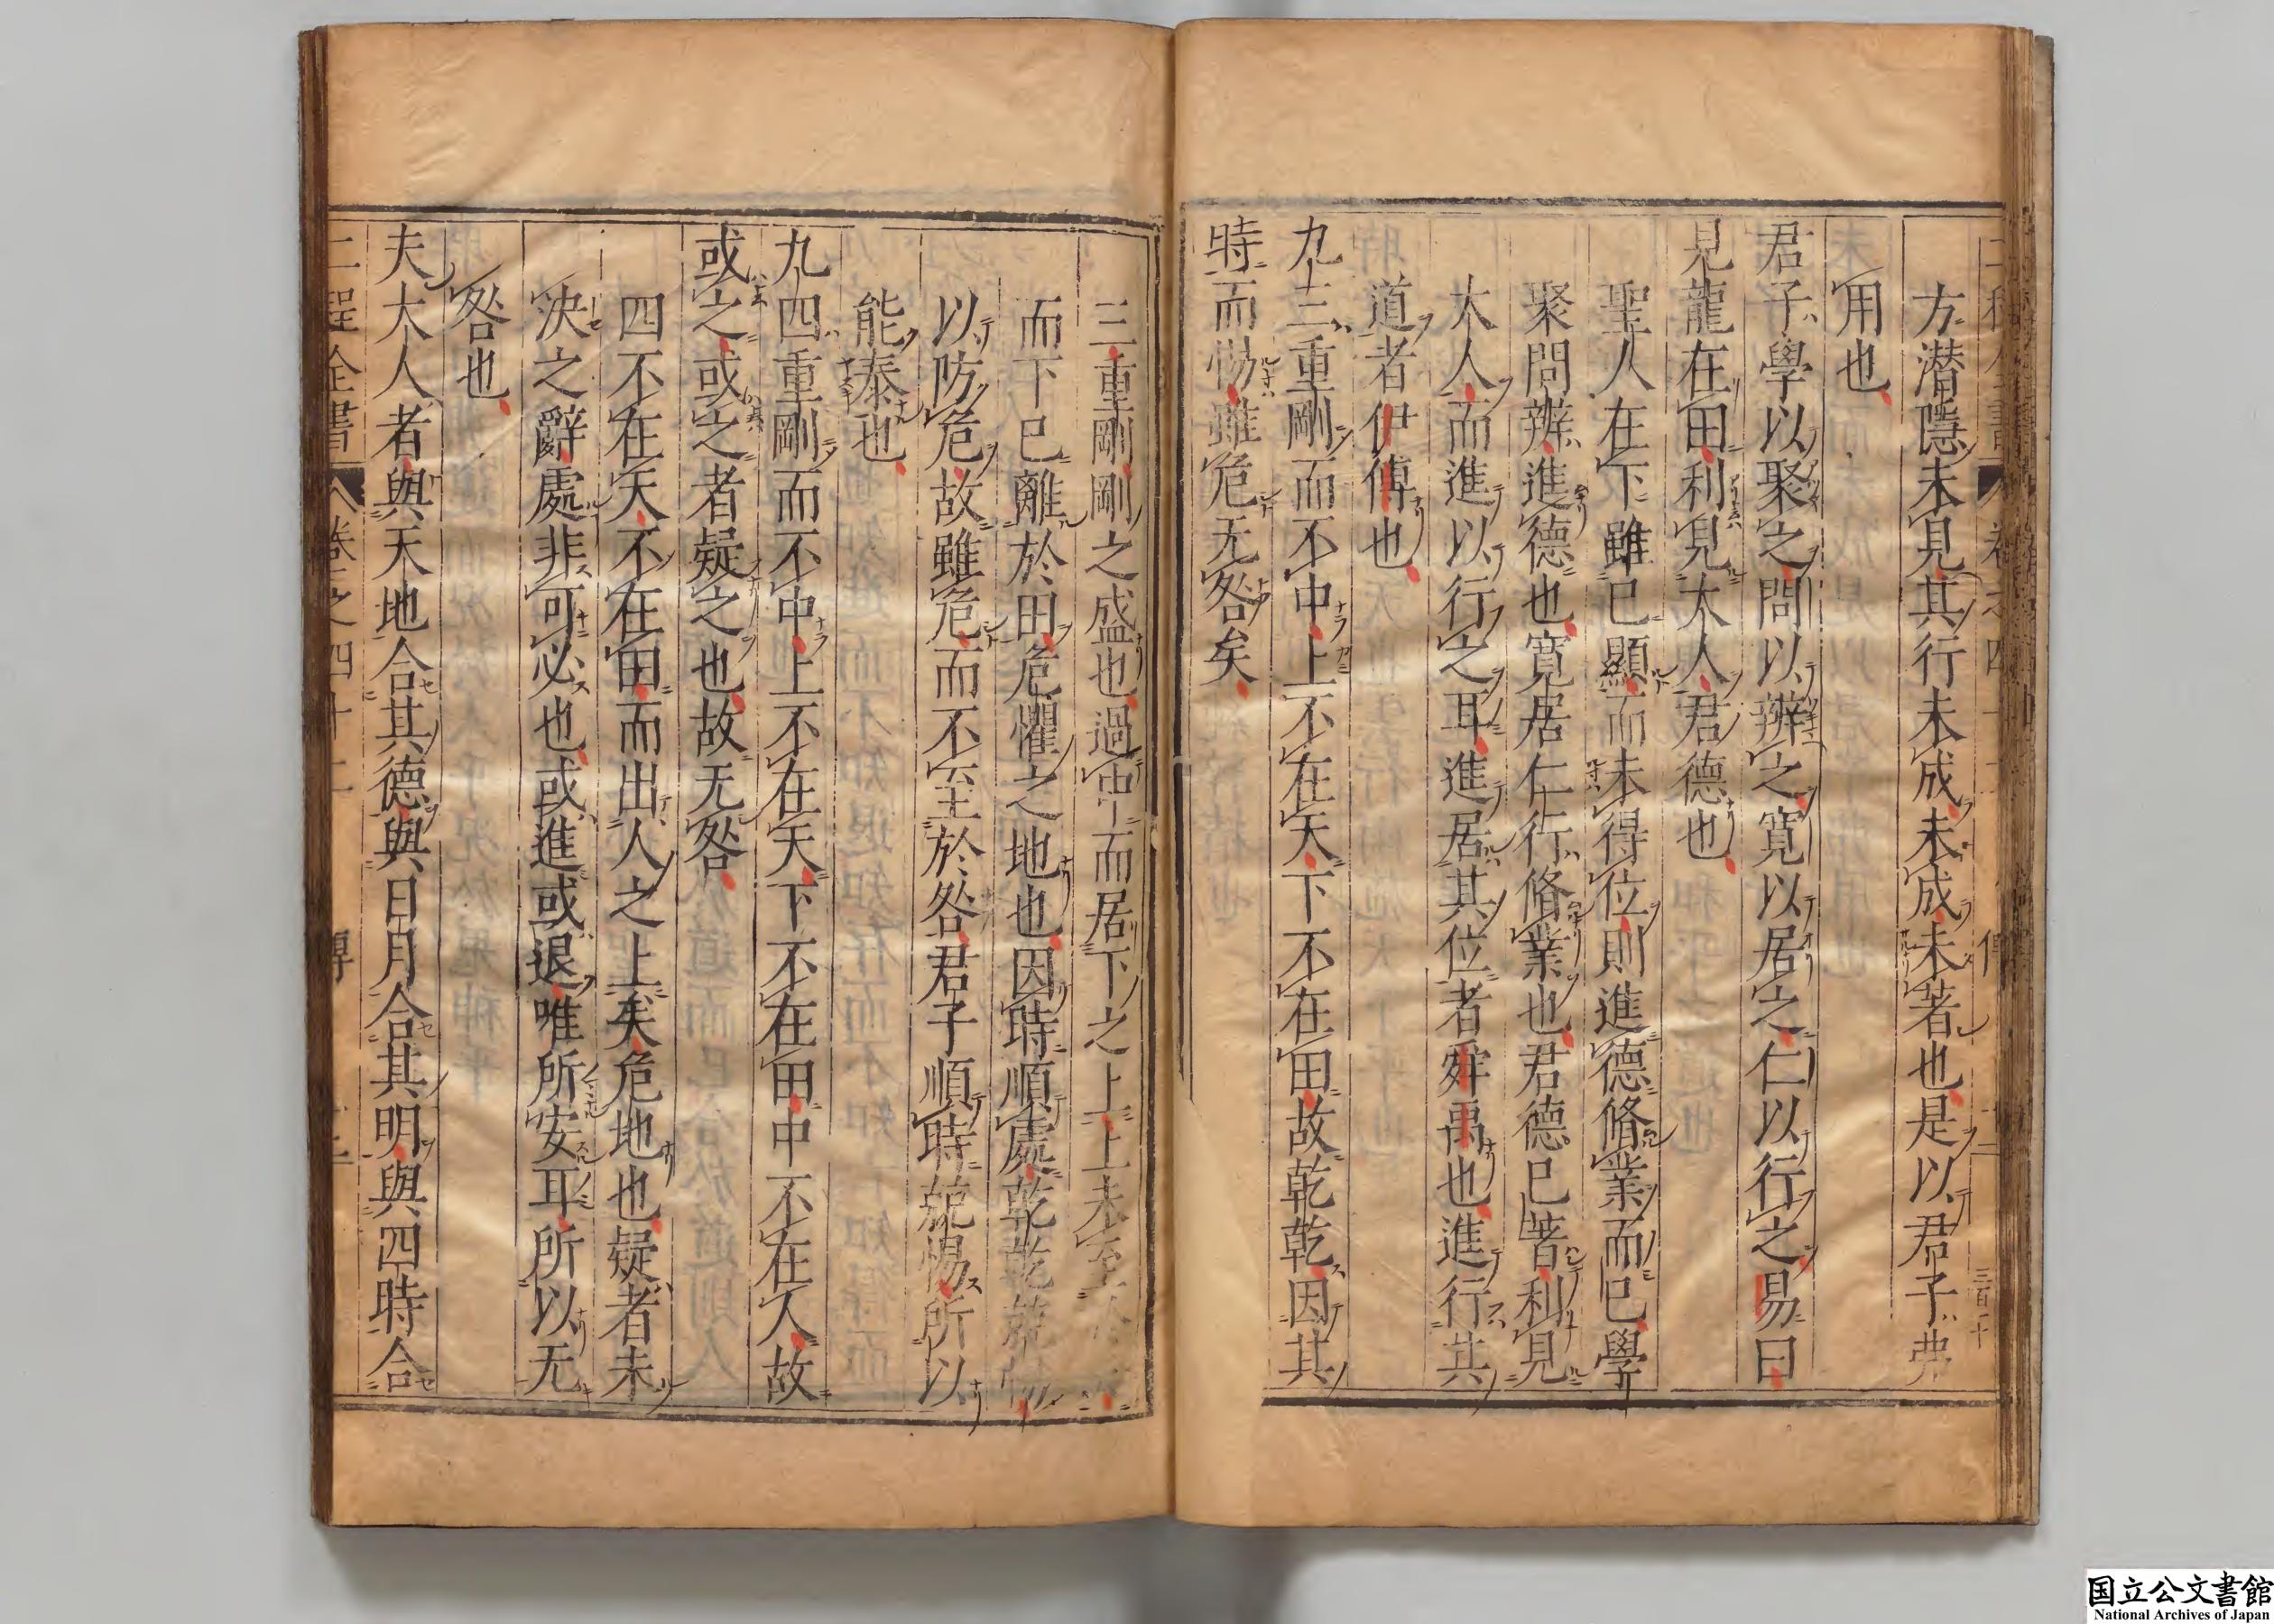 方潛隱未見其行未成未成未著也是以君子弗
用也
君子學以聚之問以辨之寬以居之仁以行之易曰
見龍在田利見大人君德也
聖人在下雖已顯而未得位則進德脩業而已學
聚問辨進德也寬居仁行脩業也君德已著利見
大人而進以行之耳進居其位者舜禹也進行其
道者伊傅也
九三重剛而不中上不在天下不在田故乾乾因其
時而惕雖危无咎矣
三重剛剛之盛也過中而居下之上上未至於天
而下已離於田危懼之地也因時順處乾乾兢惕
以防危故雖危而不至於咎君子順時兢惕所以
能泰也
九四重剛而不中上不在天下不在田中不在人故
或之或之者疑之也故无咎
四不在天不在田而出人之上矣危地也疑者未
決之辭處非可必也或進或退唯所安耳所以无
咎也
夫大人者與天地合其德與日月合其明與四時合
二程全書 卷之四十二 傳
国立公文書館
National Archives of Japan